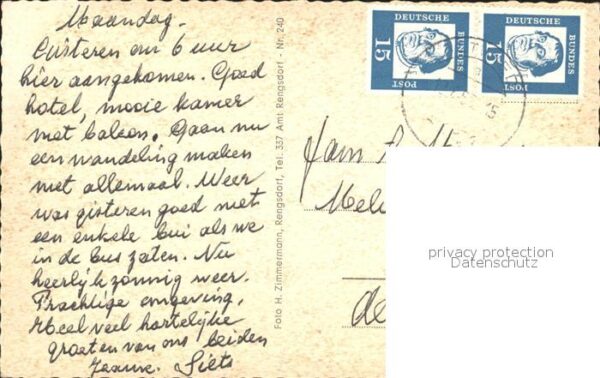 Maandag.
Gisteren om 6 uur
hier aangekomen. Goed
hotel, mooie kamer
met balcon. Gaan nu
een wandeling maken
met allemaal. Weer
was gisteren goed met
een enkele bui als we
in de bus zaten. Nu
heerlijk zonnig weer.
Prachtige omgeving.
Heel veel hartelijke
groeten van ons beiden
Siets
Foto H. Zimmermann, Rengsdorf, Tel. 337 Amt Rengsdorf - Nr. 240
DEUTSCHE
BUNDES
POST
15
DEUTSCHE
BUNDES
POST
15
Fam.
de
privacy protection
Datenschutz